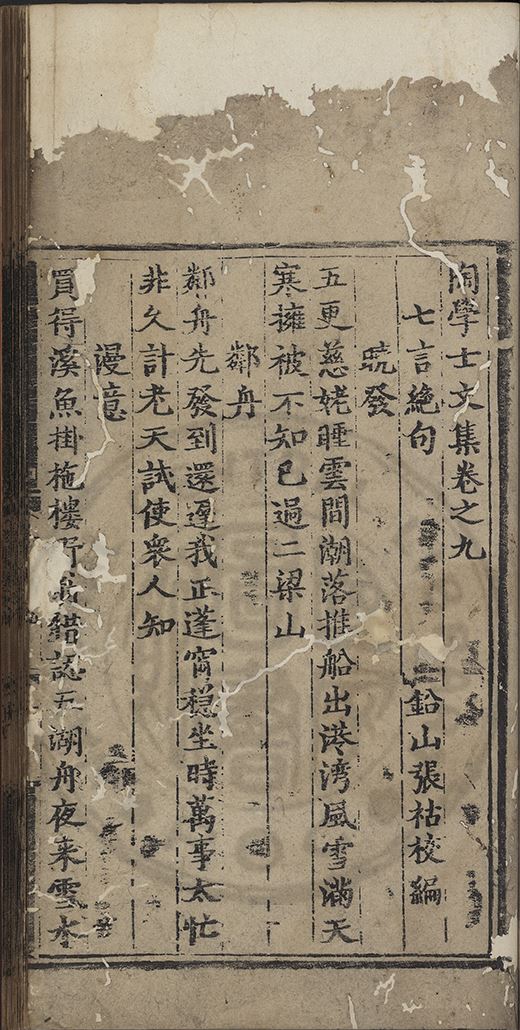 陶學士文集卷之九
七言絶句 鉛山張祜校編
疏發
五更慈姥睡雲間潮落推船出港湾風雪滿天
寒擁被不知已過二梁山
鄰舟
鄰舟先發到還遲我正蓬窗穏坐時萬事太忙
非久計老天試使衆人知
漫意
買得溪魚掛柂樓野翁錯認五湖舟夜来雪水